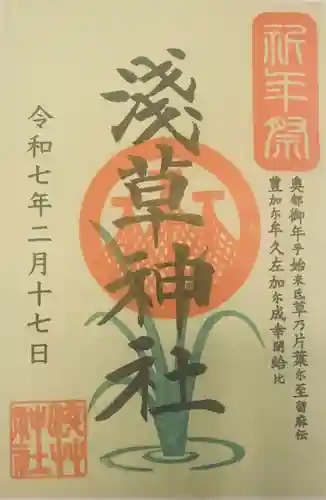 祈年祭
奥都御年乎始米氐草乃片葉尓至留麻伝
豊加尓牟久左加尓成幸閇給比
淺草神社
令和七年二月十七日